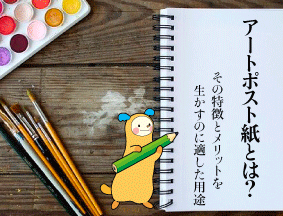 アートポスト紙とは？
その特徴とメリットを
生かすのに適した用途